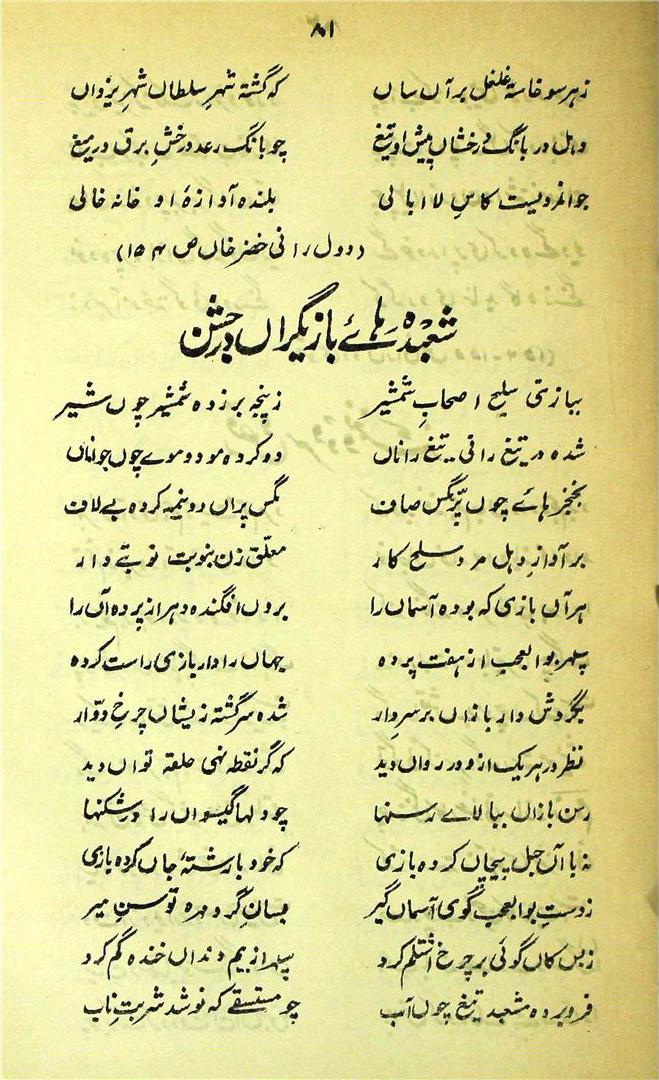 ۸۱
زہر سو خاستہ غلغل برآں ساں کہ گشتہ شہرِ سلطاں شہرِ یزداں
دہل در بانگ درخشاں پیش او تیغ چو بانگ رعد درخشِ برق در میغ
جوانمردیست کاسِ لا ابالی بلندہ آوازۂ او خانہ خالی
(دول رانی خضر خاں ص ۱۵۴)
شعبدہ ہائے بازیگراں در جشن
ببازش سلیح اصحابِ شمشیر ز پنجہ بر زدہ شمشیر چوں شیر
شدہ در تیغ رانی تیغ راناں دو کردہ مو دو موے چوں جواناں
بخنجر ہائے چوں پرِّ مگس صاف مگس پراں دو نیمہ کردہ بے لاف
بر آوازِ دہل مرد سلح کار معلّق زن بنوبت نوبتے دار
ہر آں بازی کہ بودہ آسماں را بروں افگندہ دہر از پردہ آں را
سپہر بوالعجب از ہفت پردہ جہاں را دار بازی راست کردہ
بگردش دار بازاں بر سرِ دار شدہ سرگشتہ زیشاں چرخِ دوّار
نظر در ہر یک از دور رواں دید کہ گر نقطہ نہی حلقہ تواں دید
رسن بازاں ببالاے رسنہا چو دلہا گیسواں را در شکنہا
نہ با آں حبل پیچاں کردہ بازی کہ خود با رشتۂ جاں کردہ بازی
ز دستِ بوالعجب گوی آسماں گیر بسانِ گرد مہرہ توسنِ میر
ز بس کاں گوئی بر چرخ اشتلم کرد سپہر از بیم دنداں خندہ گم کرد
فرو بردہ مشعبد تیغ چوں آب چو مستسقے کہ نوشد شربتِ ناب